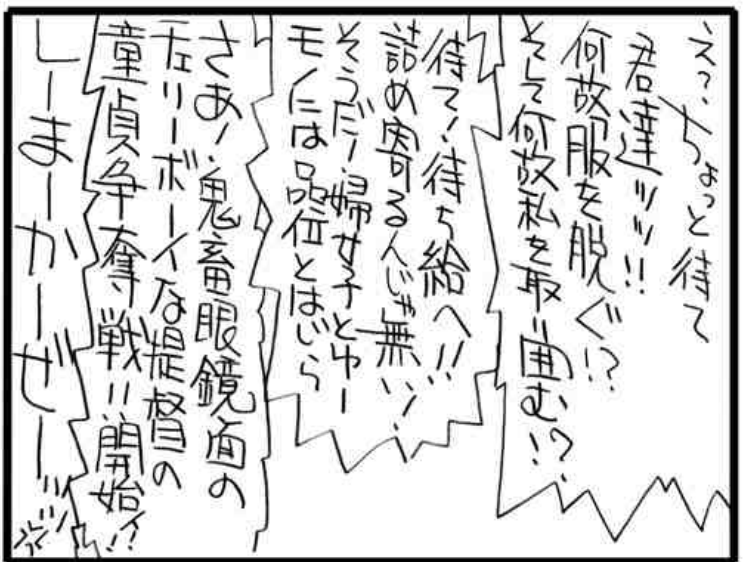 え?、ちょっと待て
君達ッッ!!
何故服を脱ぐ!?
そして何故私を取り囲む?!
待て!待ち給へ!!
詰め寄るんじゃ無いッ!
そうだ!婦女子とゆー
モノには品位とはじら
さあ!鬼畜眼鏡面の
チェリーボーイな提督の
童貞争奪戦!!開始!!
しーまーかーぜーッ!!